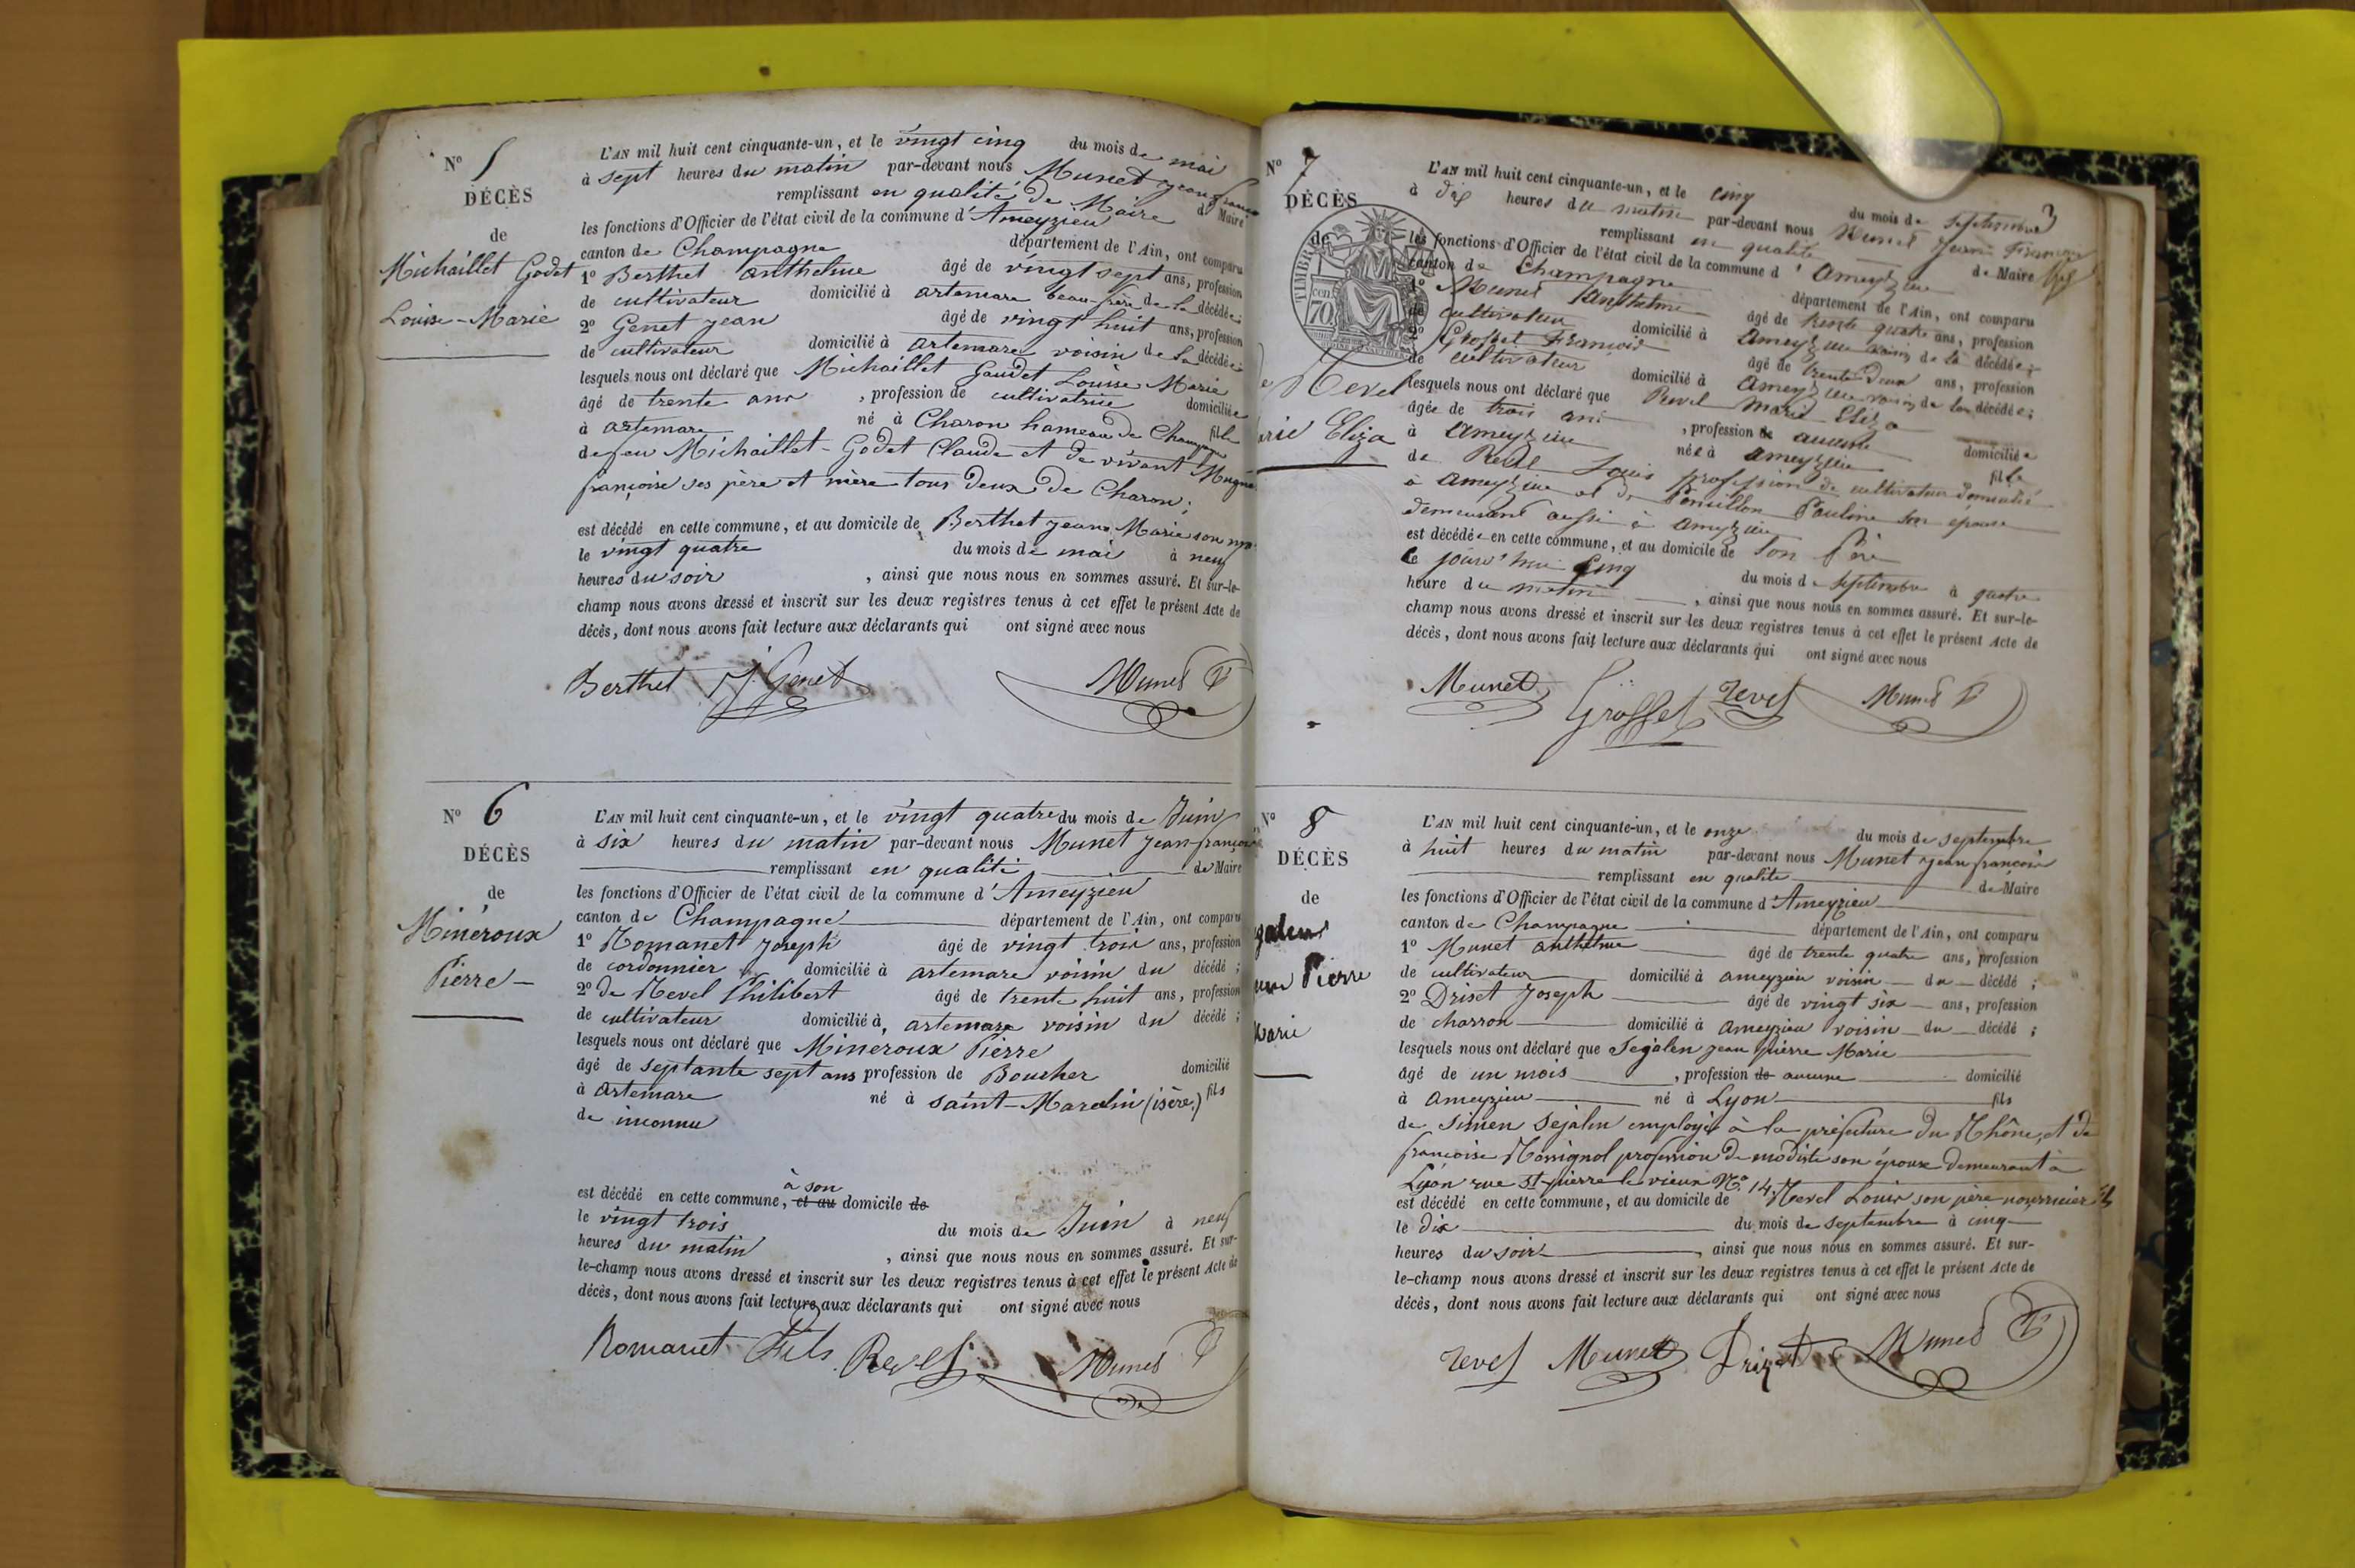 N° 5
DÉCÈS
de
Michaillet Godet
Louise-Marie
L'AN mil huit cent cinquante-un, et le vingt cinq du mois de mai
à sept heures du matin par-devant nous Munet Jean françois
remplissant en qualité de Maire de Maire
les fonctions d'Officier de l'état civil de la commune d'Ameyzieu
canton de Champagne département de l'Ain, ont comparu
1° Berthet anthelme âgé de vingt sept ans, profession
de cultivateur domicilié à artemare beau-frère de la décédée
2° Genet jean âgé de vingt huit ans, profession
de cultivateur domicilié à artemare voisin de la décédée
lesquels nous ont déclaré que Michaillet Gaudet Louise Marie
âgé de trente ans, profession de cultivatrice domiciliée
à artemare né à Charon hameau de Champagne fille
de feu Michaillet-Godet Claude et de vivant
françoise ses père et mère tous deux de Charon;
est décédé en cette commune, et au domicile de Berthet jean Marie son
le vingt quatre du mois de mai à neuf
heures du soir, ainsi que nous nous en sommes assuré. Et sur-le-
champ nous avons dressé et inscrit sur les deux registres tenus à cet effet le présent Acte de
décès, dont nous avons fait lecture aux déclarants qui ont signé avec nous
Berthet J. Genet Munet
N° 6
DÉCÈS
de
Minéroux
Pierre
L'AN mil huit cent cinquante-un, et le vingt quatre du mois de Juin
à six heures du matin par-devant nous Munet Jean-françois
remplissant en qualité de Maire
les fonctions d'Officier de l'état civil de la commune d'Ameyzieu
canton de Champagne département de l'Ain, ont comparu
1° Romanet joseph âgé de vingt trois ans, profession
de cordonnier domicilié à artemare voisin du décédé;
2° de Revel Philibert âgé de trente huit ans, profession
de cultivateur domicilié à artemare voisin du décédé;
lesquels nous ont déclaré que Mineroux Pierre
âgé de septante sept ans profession de Boucher domicilié
à artemare né à saint-Marcelin (isère) fils
de inconnu
à son
est décédé en cette commune, et au domicile de
le vingt trois du mois de Juin à neuf
heures du matin, ainsi que nous nous en sommes assuré. Et sur-
le-champ nous avons dressé et inscrit sur les deux registres tenus à cet effet le présent Acte de
décès, dont nous avons fait lecture aux déclarants qui ont signé avec nous
Romanet Fils Revel Munet
N° 7
DÉCÈS
de
TIMBRE
70
Revel
arie Eliza
3
L'AN mil huit cent cinquante-un, et le cinq du mois de septembre
à dix heures du matin par-devant nous Munet Jean François
remplissant en qualité de Maire
les fonctions d'Officier de l'état civil de la commune d'Ameyzieu
canton de Champagne département de l'Ain, ont comparu
1° Munet Anthelme âgé de trente quatre ans, profession
de cultivateur domicilié à Ameyzieu voisin de la décédée;
2° Grosset François âgé de trente deux ans, profession
de cultivateur domicilié à Ameyzieu voisin de la décédée;
lesquels nous ont déclaré que Revel Marie Eliza
âgée de trois ans, profession de aucune domiciliée
à Ameyzieu née à Ameyzieu fille
de Revel Louis profession de cultivateur domicilié
à Ameyzieu et de Pauline son épouse
demeurant aussi à Ameyzieu
est décédée en cette commune, et au domicile de son Père
le jourd'hui cinq du mois de septembre à quatre
heure du matin, ainsi que nous nous en sommes assuré. Et sur-le-
champ nous avons dressé et inscrit sur les deux registres tenus à cet effet le présent Acte de
décès, dont nous avons fait lecture aux déclarants qui ont signé avec nous
Munet Grosset revel Munet
N° 8
DÉCÈS
de
galen
Pierre
Marie
L'AN mil huit cent cinquante-un, et le onze du mois de septembre
à huit heures du matin par-devant nous Munet Jean françois
remplissant en qualité de Maire
les fonctions d'Officier de l'état civil de la commune d'Ameyzieu
canton de Champagne département de l'Ain, ont comparu
1° Munet anthelme âgé de trente quatre ans, profession
de cultivateur domicilié à ameyzieu voisin du décédé;
2° Driset Joseph âgé de vingt six ans, profession
de charron domicilié à ameyzieu voisin du décédé;
lesquels nous ont déclaré que Segalen jean pierre Marie
âgé de un mois, profession de aucune domicilié
à ameyzieu né à Lyon fils
de Simen Sejalen employé à la préfecture du Rhône, et de
françoise Rossignol profession de modiste son épouse demeurant à
Lyon rue St-pierre le vieux N° 14.
est décédé en cette commune, et au domicile de Revel Louis son père nourricier
le dix du mois de septembre à cinq
heures du soir, ainsi que nous nous en sommes assuré. Et sur-
le-champ nous avons dressé et inscrit sur les deux registres tenus à cet effet le présent Acte de
décès, dont nous avons fait lecture aux déclarants qui ont signé avec nous
revel Munet Drizet Munet